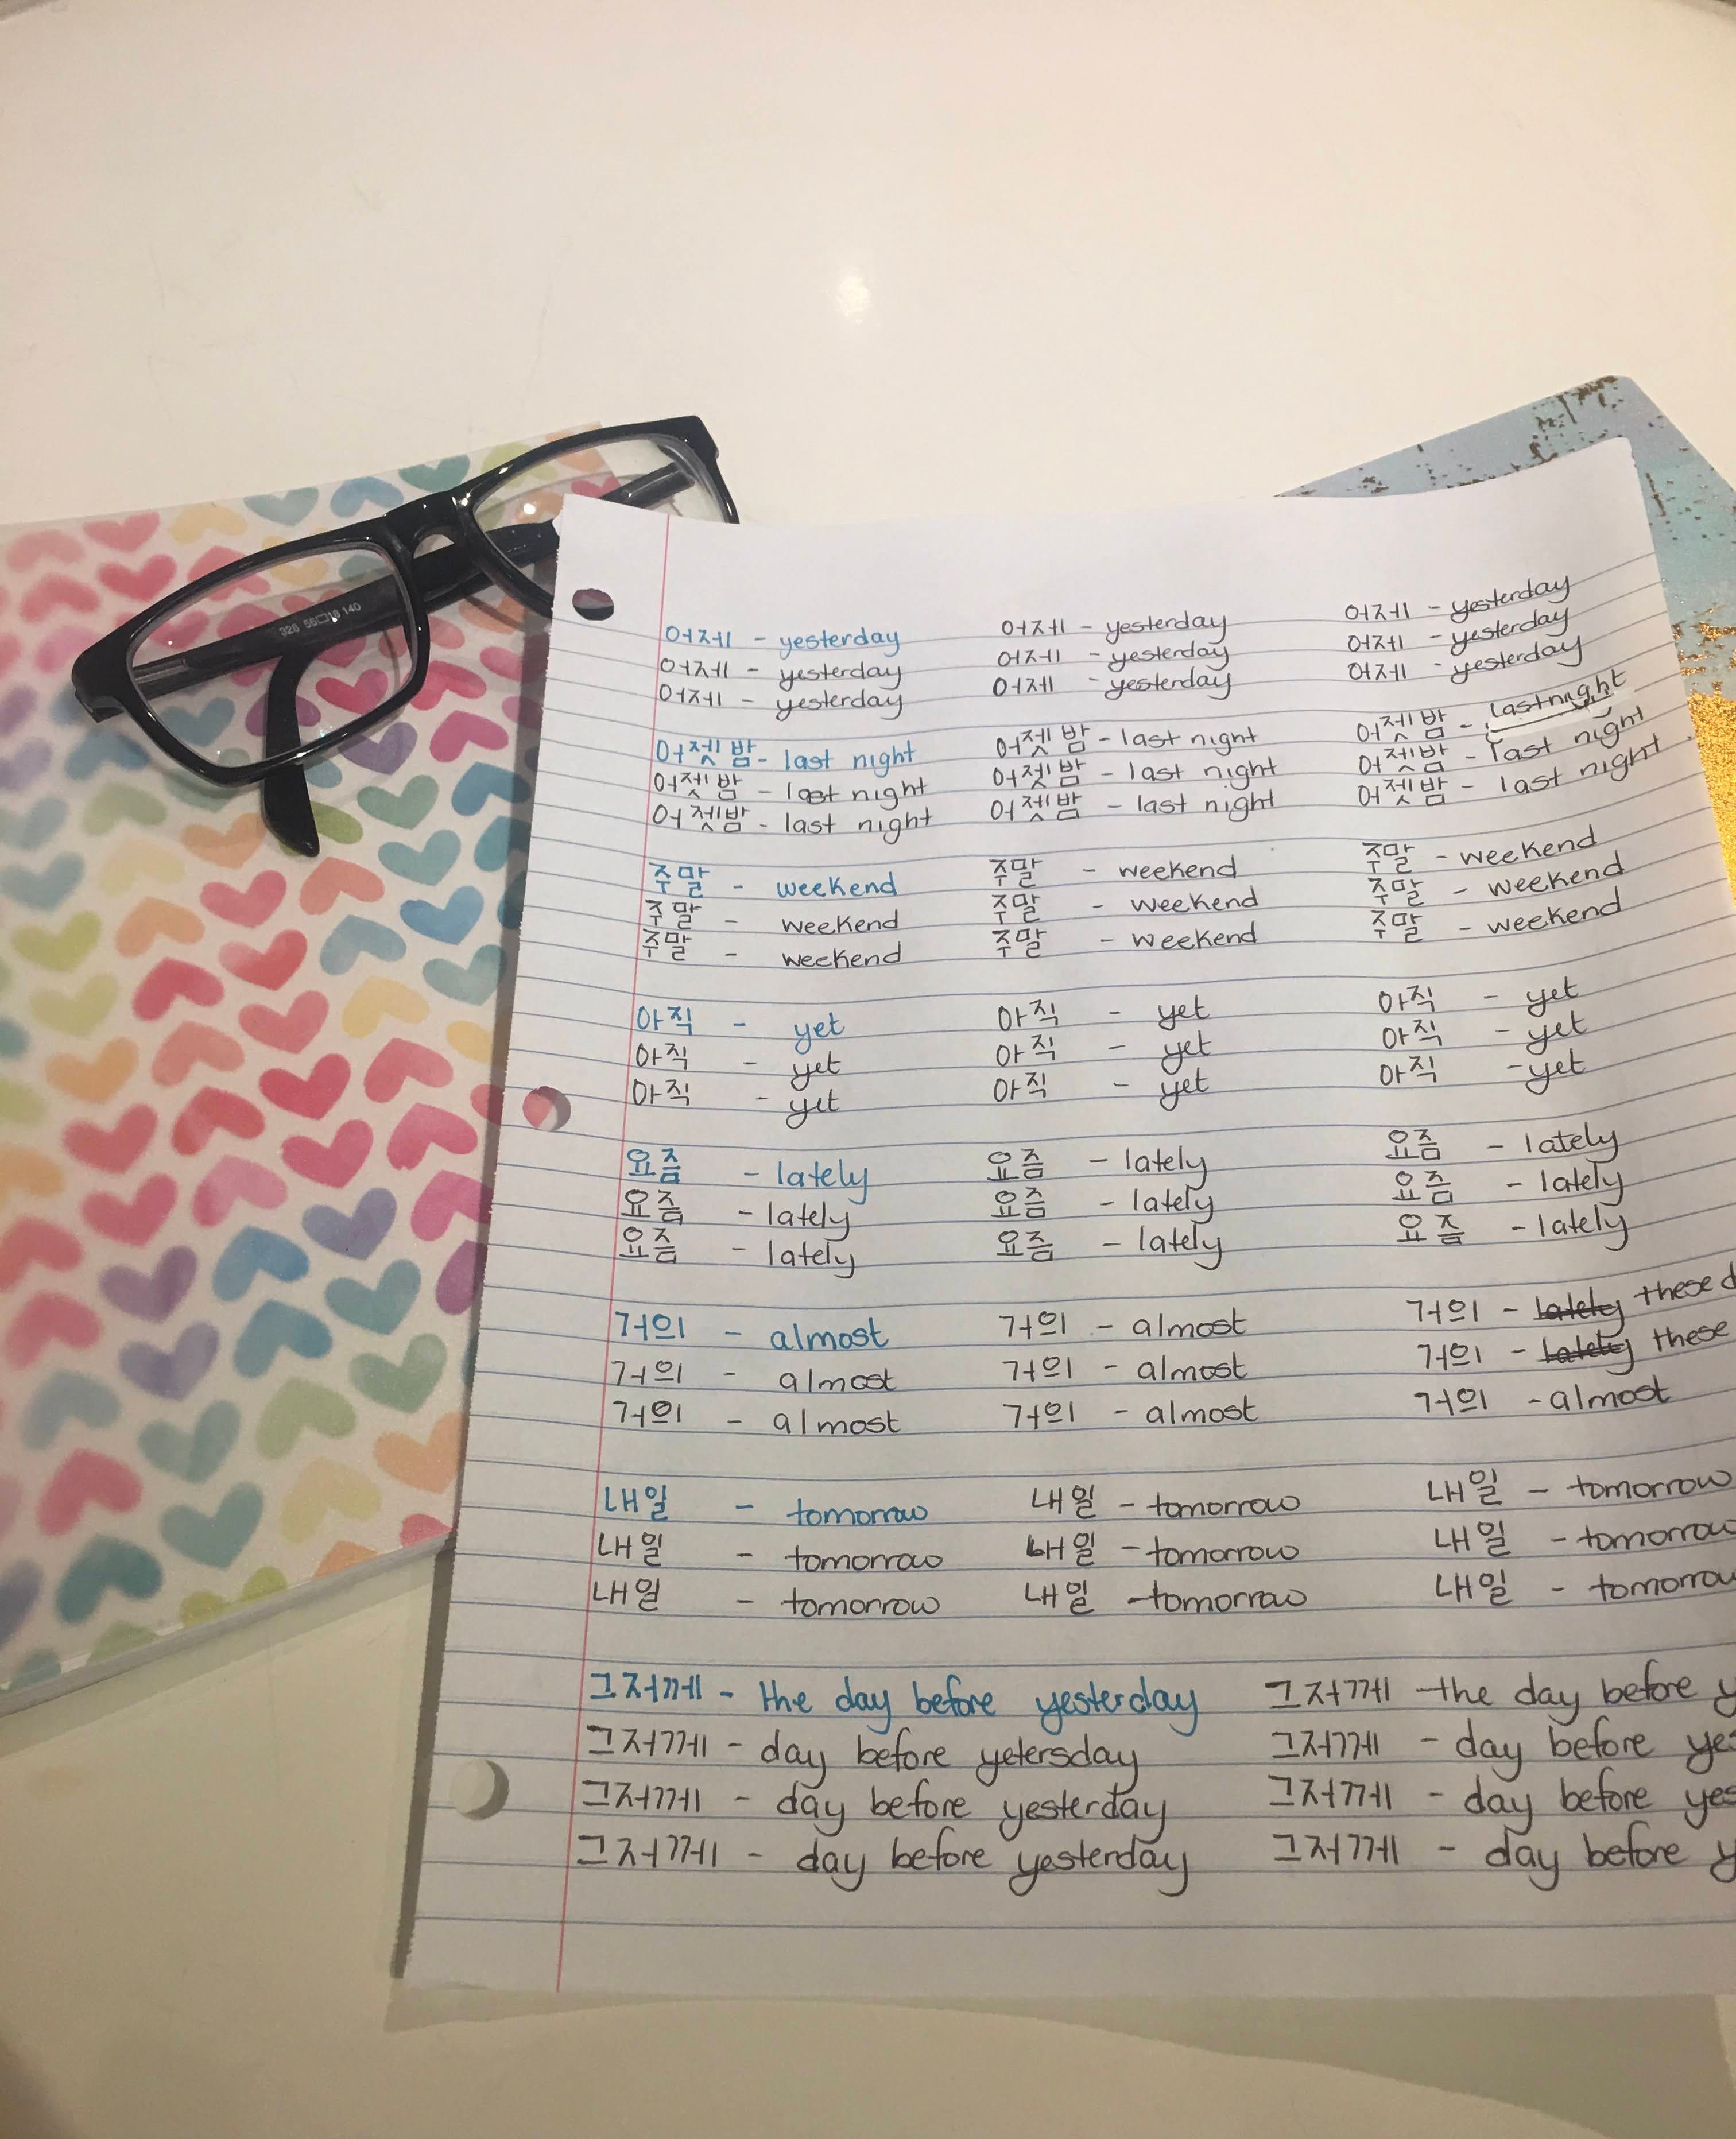 328 56□18 140
어제 - yesterday 어제 - yesterday 어제 - yesterday
어제 - yesterday 어제 - yesterday 어제 - yesterday
어제 - yesterday 어제 - yesterday 어제 - yesterday
어젯밤 - last night 어젯밤 - last night 어젯밤 - last night
어젯밤 - last night 어젯밤 - last night 어젯밤 - last night
어젯밤 - last night 어젯밤 - last night 어젯밤 - last night
주말 - weekend 주말 - weekend 주말 - weekend
주말 - weekend 주말 - weekend 주말 - weekend
주말 - weekend 주말 - weekend 주말 - weekend
아직 - yet 아직 - yet 아직 - yet
아직 - yet 아직 - yet 아직 - yet
아직 - yet 아직 - yet 아직 - yet
요즘 - lately 요즘 - lately 요즘 - lately
요즘 - lately 요즘 - lately 요즘 - lately
요즘 - lately 요즘 - lately 요즘 - lately
거의 - almost 거의 - almost 거의 - lately these d
거의 - almost 거의 - almost 거의 - lately these
거의 - almost 거의 - almost 거의 - almost
내일 - tomorrow 내일 - tomorrow 내일 - tomorrow
내일 - tomorrow 내일 - tomorrow 내일 - tomorrow
내일 - tomorrow 내일 - tomorrow 내일 - tomorrow
그저께 - the day before yesterday 그저께 - the day before y
그저께 - day before yetersday 그저께 - day before yes
그저께 - day before yesterday 그저께 - day before yes
그저께 - day before yesterday 그저께 - day before y